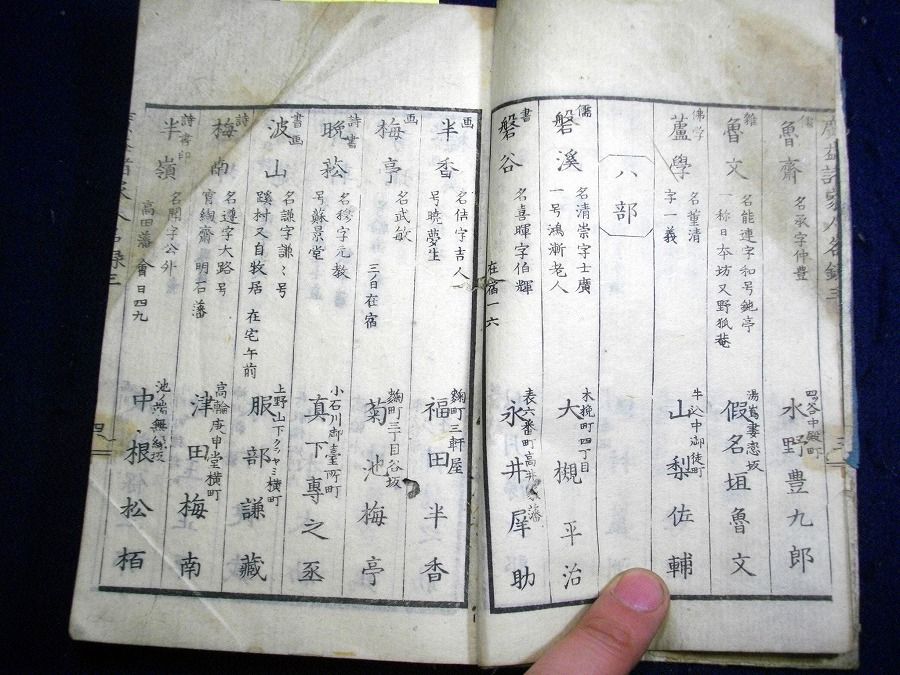 魯齋 名承字仲豊 四谷中殿町 水野豊九郎
雜 魯文 名能連字和号鈍亭 一称日本坊又野狐菴 湯嶌妻恋坂 假名垣魯文
佛学 蘆學 名董清 字一義 牛込中御徒町 山梨佐輔
ハ部
儒 磐溪 名清崇字士廣 一号鴻漸老人 木挽町四丁目 大槻平治
書 磐谷 名喜暉字伯輝 在宿一六 表六番町高井藩 永井犀助
画 半香 名佶字吉人 号曉夢生 麹町三軒屋 福田半香
画 梅亭 名武敏 三ノ日在宿 麹町三丁目谷坂 菊池梅亭
詩書 晩菘 名穆字元教 号蘇景堂 小石川御臺所町 真下專之丞
書画 波山 名謙字謙〻号 蹊村又自牧居 在宅午前 上野山下クラヤミ横町 服部謙藏
詩 梅南 名遵字大路号 宵絢齋 明石藩 高輪庚申堂横町 津田梅南
詩書印 半嶺 名聞字公外 高田藩 會日四九 池ノ端無縁坂 中根松栢